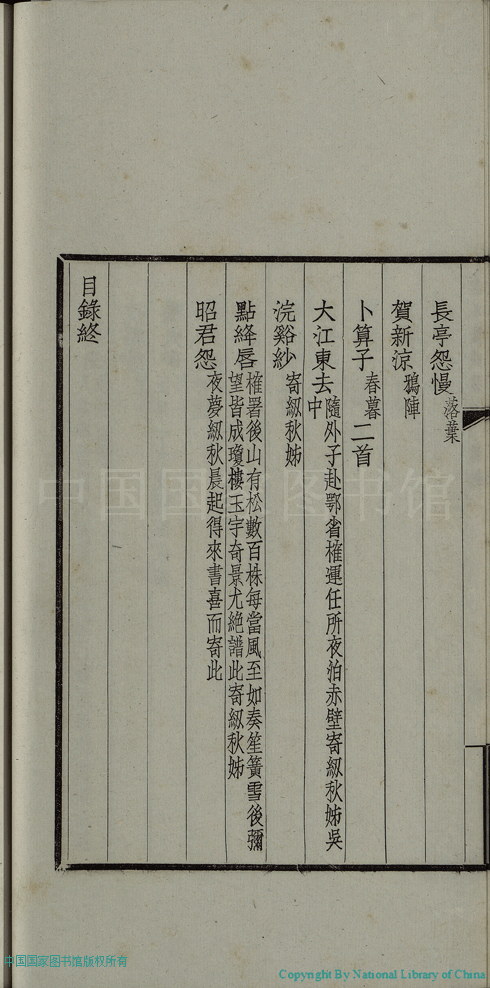 長亭怨慢落葉
賀新涼鴉陣
卜算子春暮二首
大江東去隨外子赴鄂省榷運任所夜泊赤壁寄紉秋姊吳中
浣谿紗寄紉秋姊
點絳唇榷署後山有松數百株每當風至如奏笙簧雪後彌望皆成瓊樓玉宇奇景尤絶譜此寄紉秋姊
昭君怨夜夢紉秋晨起得來書喜而寄此
目錄終
中国国家图书馆
中国国家图书馆版权所有
Copyright By National Library of China